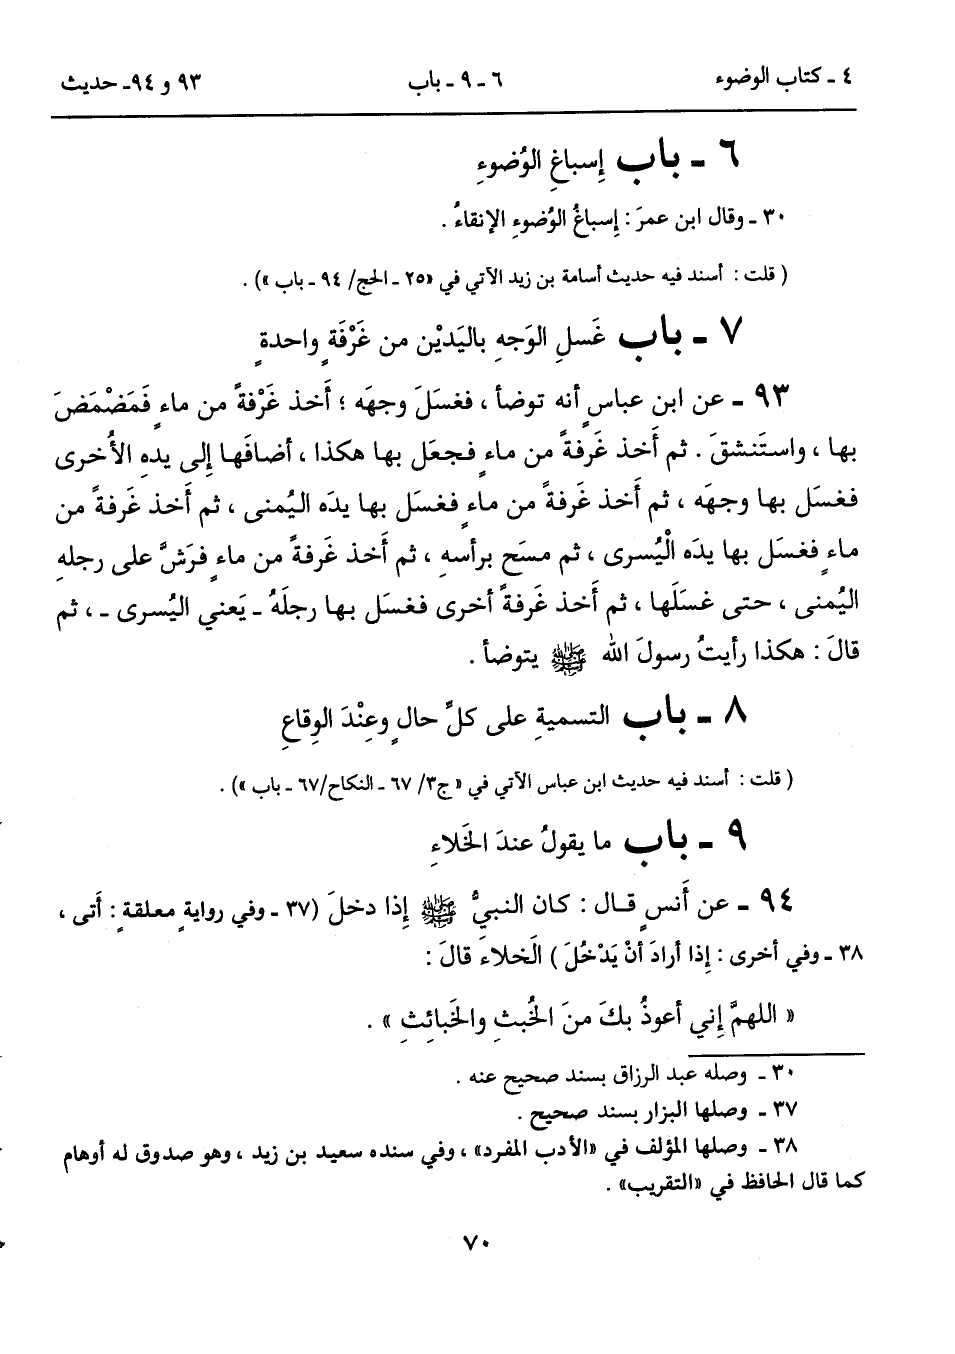 ٤ ـ كتاب الوضوء ٦ ـ ٩ ـ باب ٩٣ و ٩٤ـ حديث
٦ ـ باب إِسباغِ الوُضوءِ
٣٠ ـ وقال ابن عمرَ : إِسباغُ الوُضوءِ الإنقاءُ .
( قلت : أسند فيه حديث أسامة بن زيد الآتي في «٢٥ ـ الحج/ ٩٤ ـ باب ») .
٧ ـ باب غَسلِ الوَجهِ باليَدَيْن من غَرْفَةٍ واحدةٍ
٩٣ ـ عن ابن عباسٍ أنه توضأ ، فغسَلَ وجهَه ؛ أَخذ غَرْفةً من ماءٍ فَمَضْمَضَ
بها ، واستَنشقَ . ثم أَخذ غَرفةً من ماءٍ فجعَل بها هكذا ، أضافَها إِلى يدهِ الأُخرى
فغسَل بها وجهَه ، ثم أَخذ غَرفةً من ماءٍ فغسَل بها يدَه اليُمنى ، ثم أَخذ غَرفةً من
ماءٍ فغسَل بها يدَه الْيُسرى ، ثم مسَح برأسهِ ، ثم أَخذ غَرفةً من ماءٍ فرَشَّ على رجلهِ
اليُمنى ، حتى غسَلَها ، ثم أَخذ غَرفةً أخرى فغسَل بها رجلَهُ ـ يَعني اليُسرى ـ ، ثم
قالَ : هكذا رأيتُ رسولَ الله ﷺ يتوضأ .
٨ ـ باب التسميةِ على كلِّ حالٍ وعِنْدَ الوِقاعِ
( قلت : أسند فيه حديث ابن عباس الآتي في « ج٣/ ٦٧ ـ النكاح/٦٧ ـ باب ») .
٩ ـ باب ما يقولُ عندَ الخَلاءِ
٩٤ ـ عن أَنسٍ قال : كان النبيُّ ﷺ إِذا دخلَ (٣٧ ـ وفي روايةٍ معلقةٍ : أَتى ،
٣٨ ـ وفي أخرى : إِذا أرادَ أنْ يَدْخُلَ ) الَخلاءَ قالَ :
« اللهمَّ إِني أعوذُ بكَ منَ الخُبثِ والخَبائِثِ » .
٣٠ ـ وصله عبد الرزاق بسند صحيح عنه .
٣٧ ـ وصلها البزار بسند صحيح .
٣٨ ـ وصلها المؤلف في «الأدب المفرد» ، وفي سنده سعيد بن زيد ، وهو صدوق له أوهام
كما قال الحافظ في «التقريب» .
٧٠